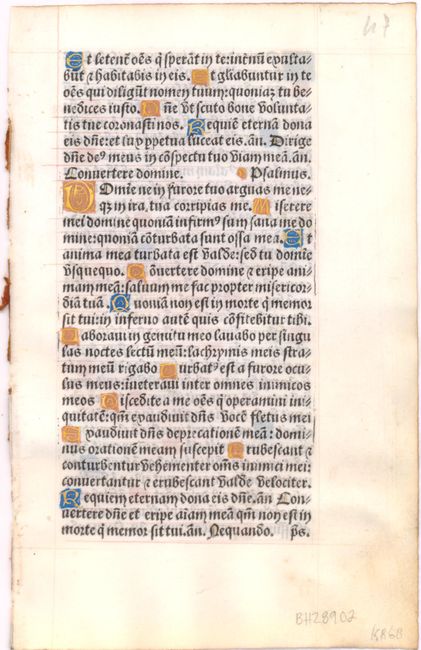 47
Et letent᷒ oēs q̄ sperāt in te: in etnū exulta-
būt ⁊ habitabis in eis. Et gl̄iabuntur in te
oēs qui diligūt nomen tuum: quoniaz tu be-
nedices iusto. Dn̄e vt scuto bone volunta-
tis tue coronasti nos. Requiē eternā dona
eis dn̄e: et lux ꝑpetua luceat eis. an̄. Dirige
dn̄e deꝰ meus in cōspectu tuo viam meā. an̄.
Conuertere domine. Psalmus.
Domine ne in furore tuo arguas me ne-
qꝫ in ira tua corripias me. Miserere
mei domine quoniā infirmꝰ sum sana me do
mine: quoniā cōturbata sunt ossa mea. Et
anima mea turbata est valde: sed tu domie
vsquequo. Cōuertere domine ⁊ eripe ani-
mam meā: saluum me fac propter misericor-
diā tuā. Quoniā non est in morte q̄ memor
sit tui: in inferno autē quis cōfitebitur tibi.
Laboraui in gemitu meo lauabo per singu
las noctes lectū meū: lachrymis meis stra-
tum meū rigabo. Turbatꝰ est a furore ocu
lus meus: inueteraui inter omnes inimicos
meos. Discedite a me oēs q̄ operamini ini-
quitatē: qm̄ exaudiuit dn̄s vocē fletus mei
Exaudiuit dn̄s deprecationē meā: domi-
nus orationē meam suscepit. Erubescant ⁊
conturbentur vehementer om̄s inimici mei:
conuertantur ⁊ erubescant valde velociter.
Requiem eternam dona eis dn̄e. an̄. Con-
uertere dn̄e et eripe aīam meā qm̄ non est in
morte q̄ memor sit tui. an̄. Nequando. ps.
BH28902
KR68